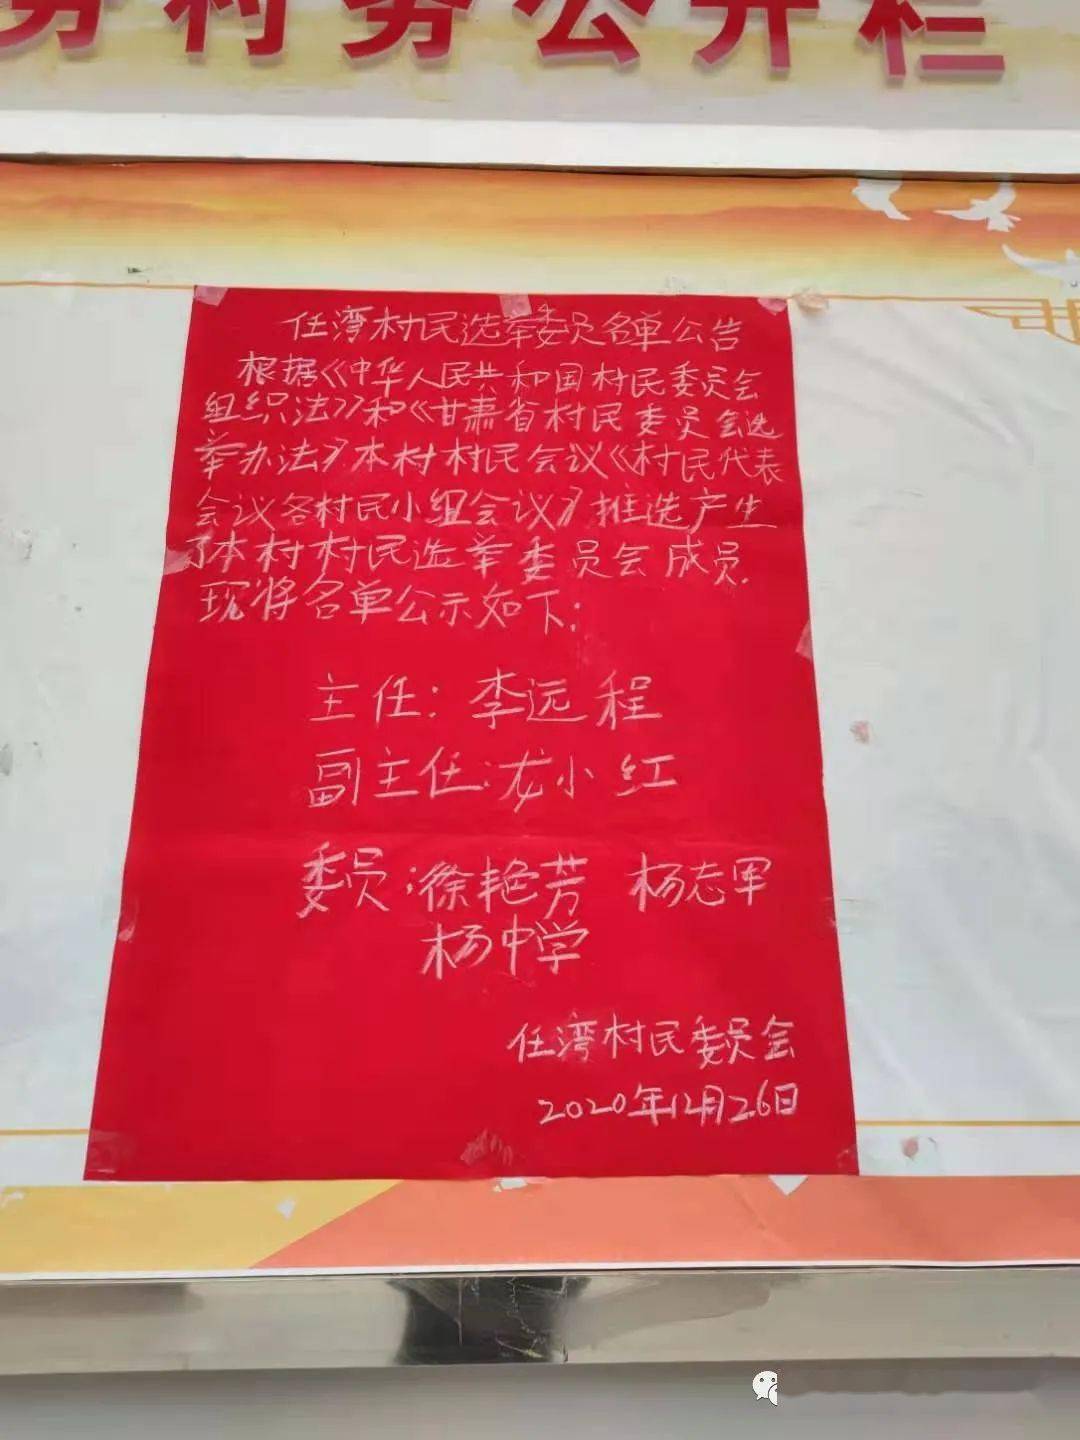 务村务公开栏
任湾村民选举委员名单公告
根据《中华人民共和国村民委员会
组织法》和《甘肃省村民委员会选
举办法》本村村民会议《村民代表
会议各村民小组会议》推选产生
了本村村民选举委员会成员.
现将名单公示如下：
主任：李远程
副主任：龙小红
委员：徐艳芳 杨志军
杨中学
任湾村民委员会
2020年12月26日